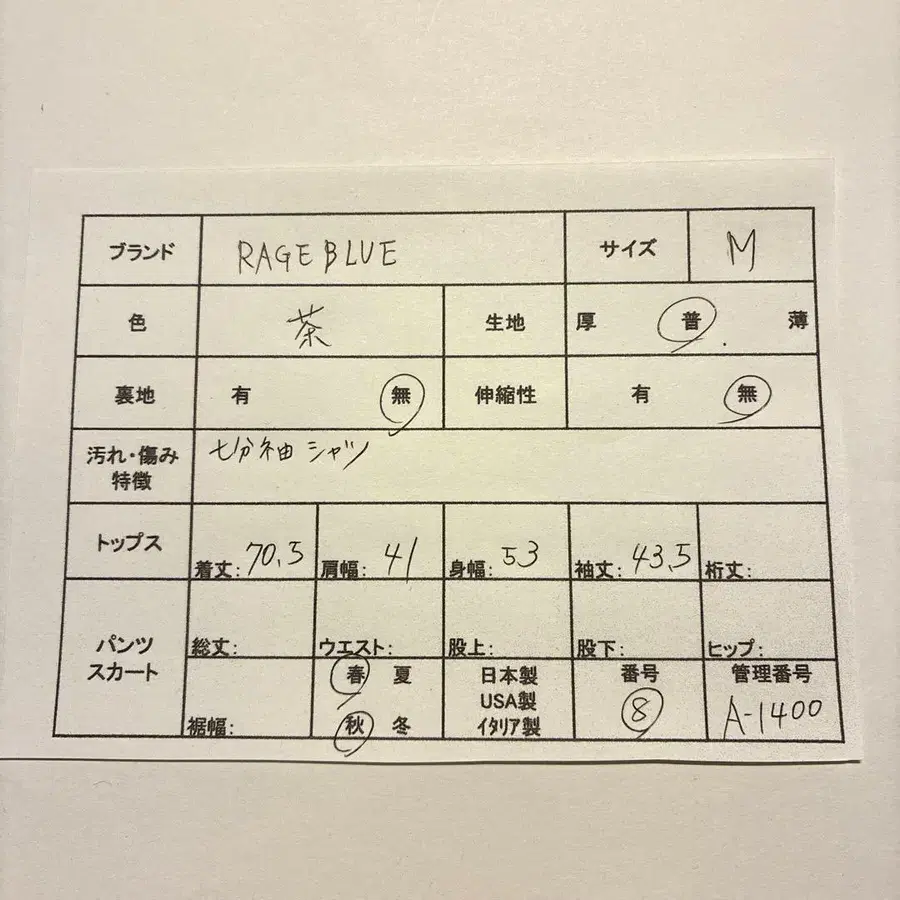 ブランド RAGE BLUE サイズ M
色 茶 生地 厚 普 薄
裏地 有 無 伸縮性 有 無
汚れ・傷み 特徴 七分袖 シャツ
トップス 着丈: 70.5 肩幅: 41 身幅: 53 袖丈: 43.5 裄丈:
パンツ スカート 総丈: ウエスト: 股上: 股下: ヒップ:
裾幅: 春 夏 秋 冬 日本製 USA製 イタリア製 番号 8 管理番号 A-1400